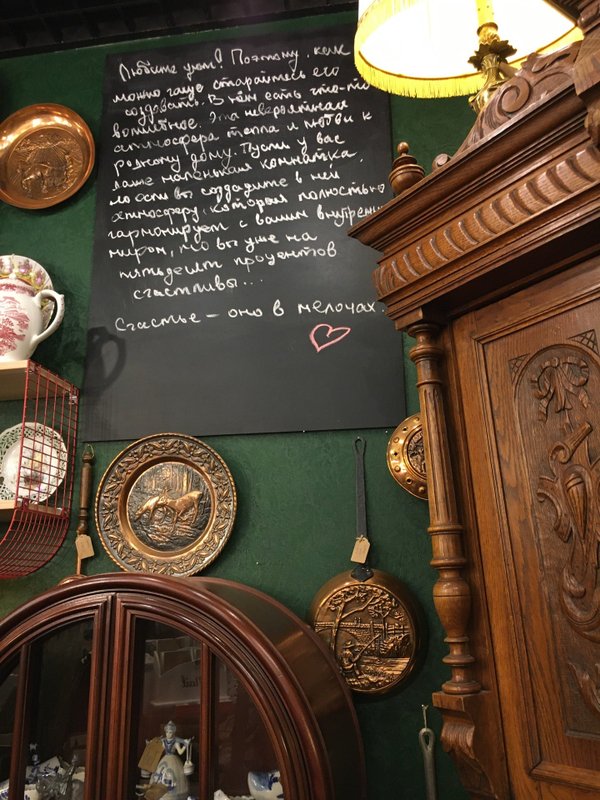 Любите уют? Поэтому, как
можно чаще старайтесь его
создавать. В нём есть что-то
волшебное. Эта невероятная
атмосфера тепла и любви к
родному дому. Пусть у вас
даже маленькая комнатка,
но если вы создадите в ней
атмосферу, которая полностью
гармонирует с вашим внутрен
миром, то вы уже на
пятьдесят процентов
счастливы...
Счастье – оно в мелочах.